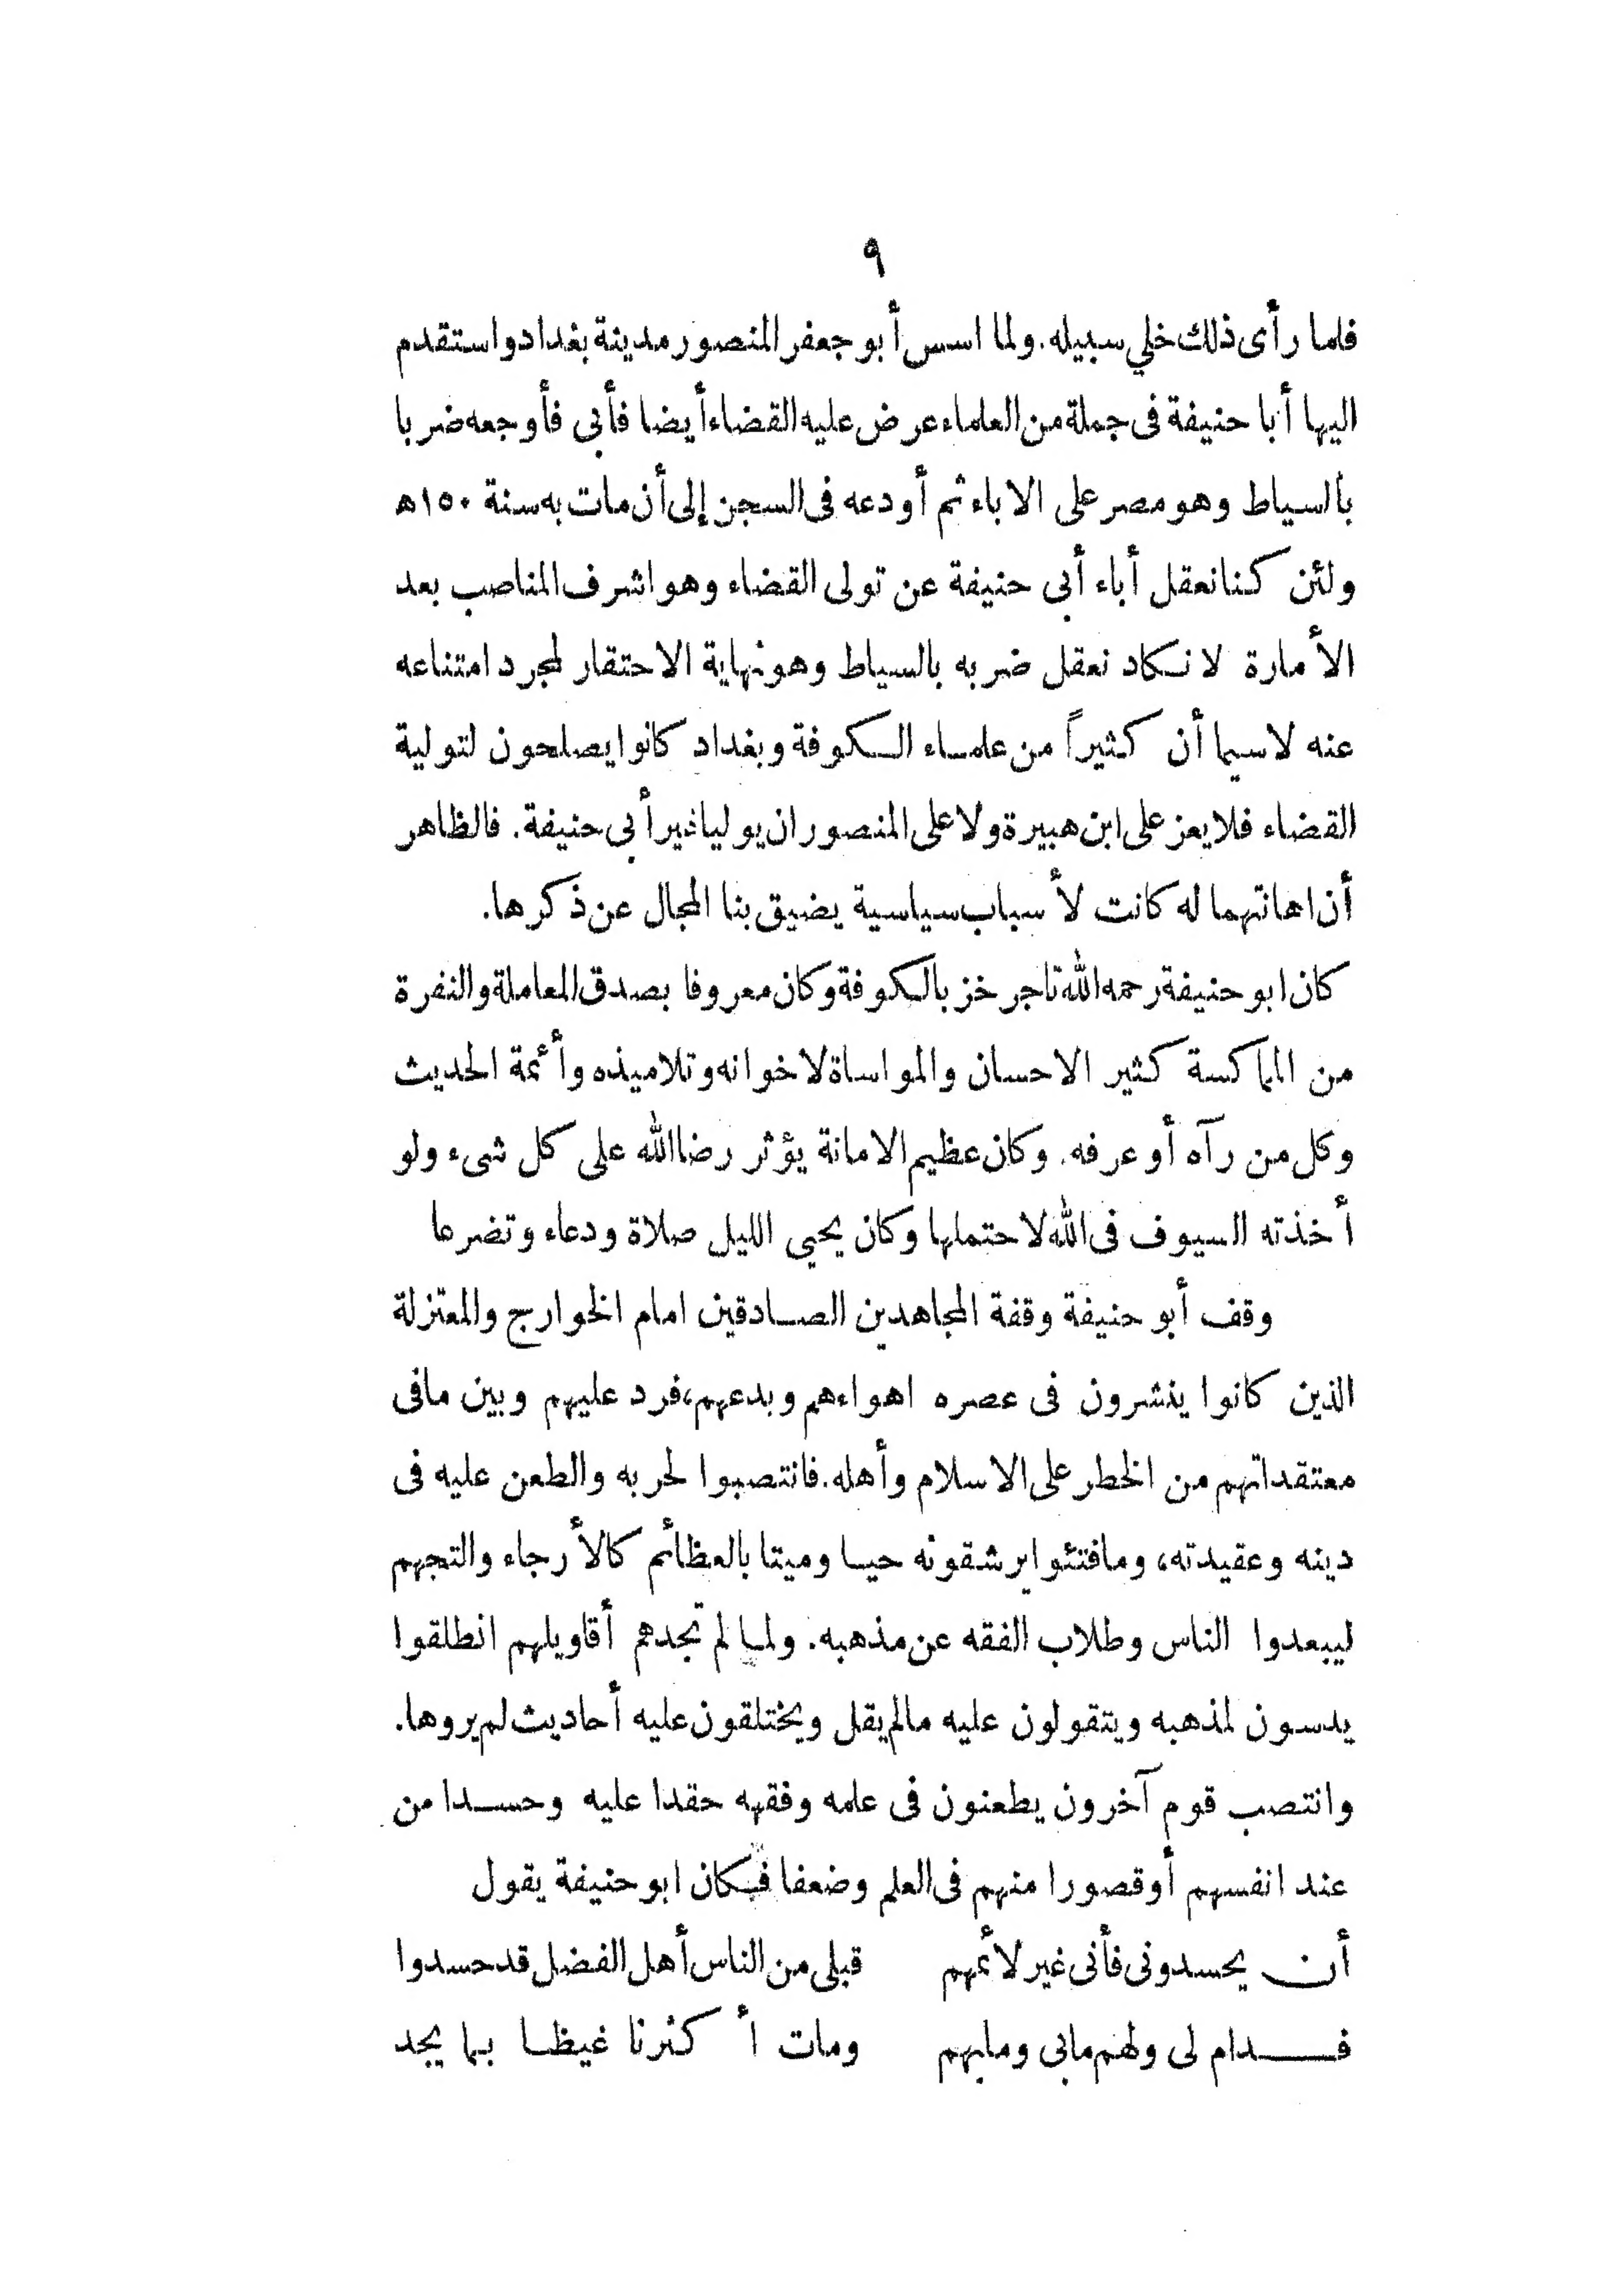 ٩
فلما رأى ذلك خلي سبيله. ولما اسس أبو جعفر المنصور مدينة بغداد واستقدم
اليها أبا حنيفة فى جملة من العلماء عرض عليه القضاء أيضا فأبى فأوجعه ضربا
بالسياط وهو مصر على الاباء ثم أودعه فى السجن إلى أن مات به سنة ١٥٠ ه
ولئن كنا نعقل أباء أبى حنيفة عن تولى القضاء وهو اشرف المناصب بعد
الأمارة لا نكاد نعقل ضربه بالسياط وهو نهاية الاحتقار لمجرد امتناعه
عنه لاسيما أن كثيراً من علماء الكوفة وبغداد كانوا يصلحون لتولية
القضاء فلا يعز على ابن هبيرة ولا على المنصور ان يوليا غير أبى حنيفة. فالظاهر
أن اهانتهما له كانت لأسباب سياسية يضيق بنا المجال عن ذكرها.
كان ابو حنيفة رحمه الله تاجر خز بالكوفة وكان معروفا بصدق المعاملة والنفرة
من المماكسة كثير الاحسان والمواساة لاخوانه وتلاميذه وأئمة الحديث
وكل من رآه أو عرفه. وكان عظيم الامانة يؤثر رضا الله على كل شىء ولو
أخذته السيوف فى الله لاحتملها وكان يحيى الليل صلاة ودعاء وتضرعا
وقف أبو حنيفة وقفة المجاهدين الصادقين امام الخوارج والمعتزلة
الذين كانوا ينشرون فى عصره اهواءهم وبدعهم، فرد عليهم وبين مافى
معتقداتهم من الخطر على الاسلام وأهله. فانتصبوا لحربه والطعن عليه فى
دينه وعقيدته، ومافتئوا يرشقونه حيا وميتا بالعظائم كالأرجاء والتجهم
ليبعدوا الناس وطلاب الفقه عن مذهبه. ولما لم تجدهم أقاويلهم انطلقوا
يدسون لمذهبه ويتقولون عليه مالم يقل ويختلقون عليه أحاديث لم يروها.
وانتصب قوم آخرون يطعنون فى علمه وفقهه حقدا عليه وحسدا من
عند انفسهم أو قصورا منهم فى العلم وضعفا فكان ابو حنيفة يقول
أن يحسدونى فأنى غير لائمهم قبلى من الناس أهل الفضل قد حسدوا
فدام لى ولهم مابى ومابهم ومات أكثرنا غيظا بما يجد